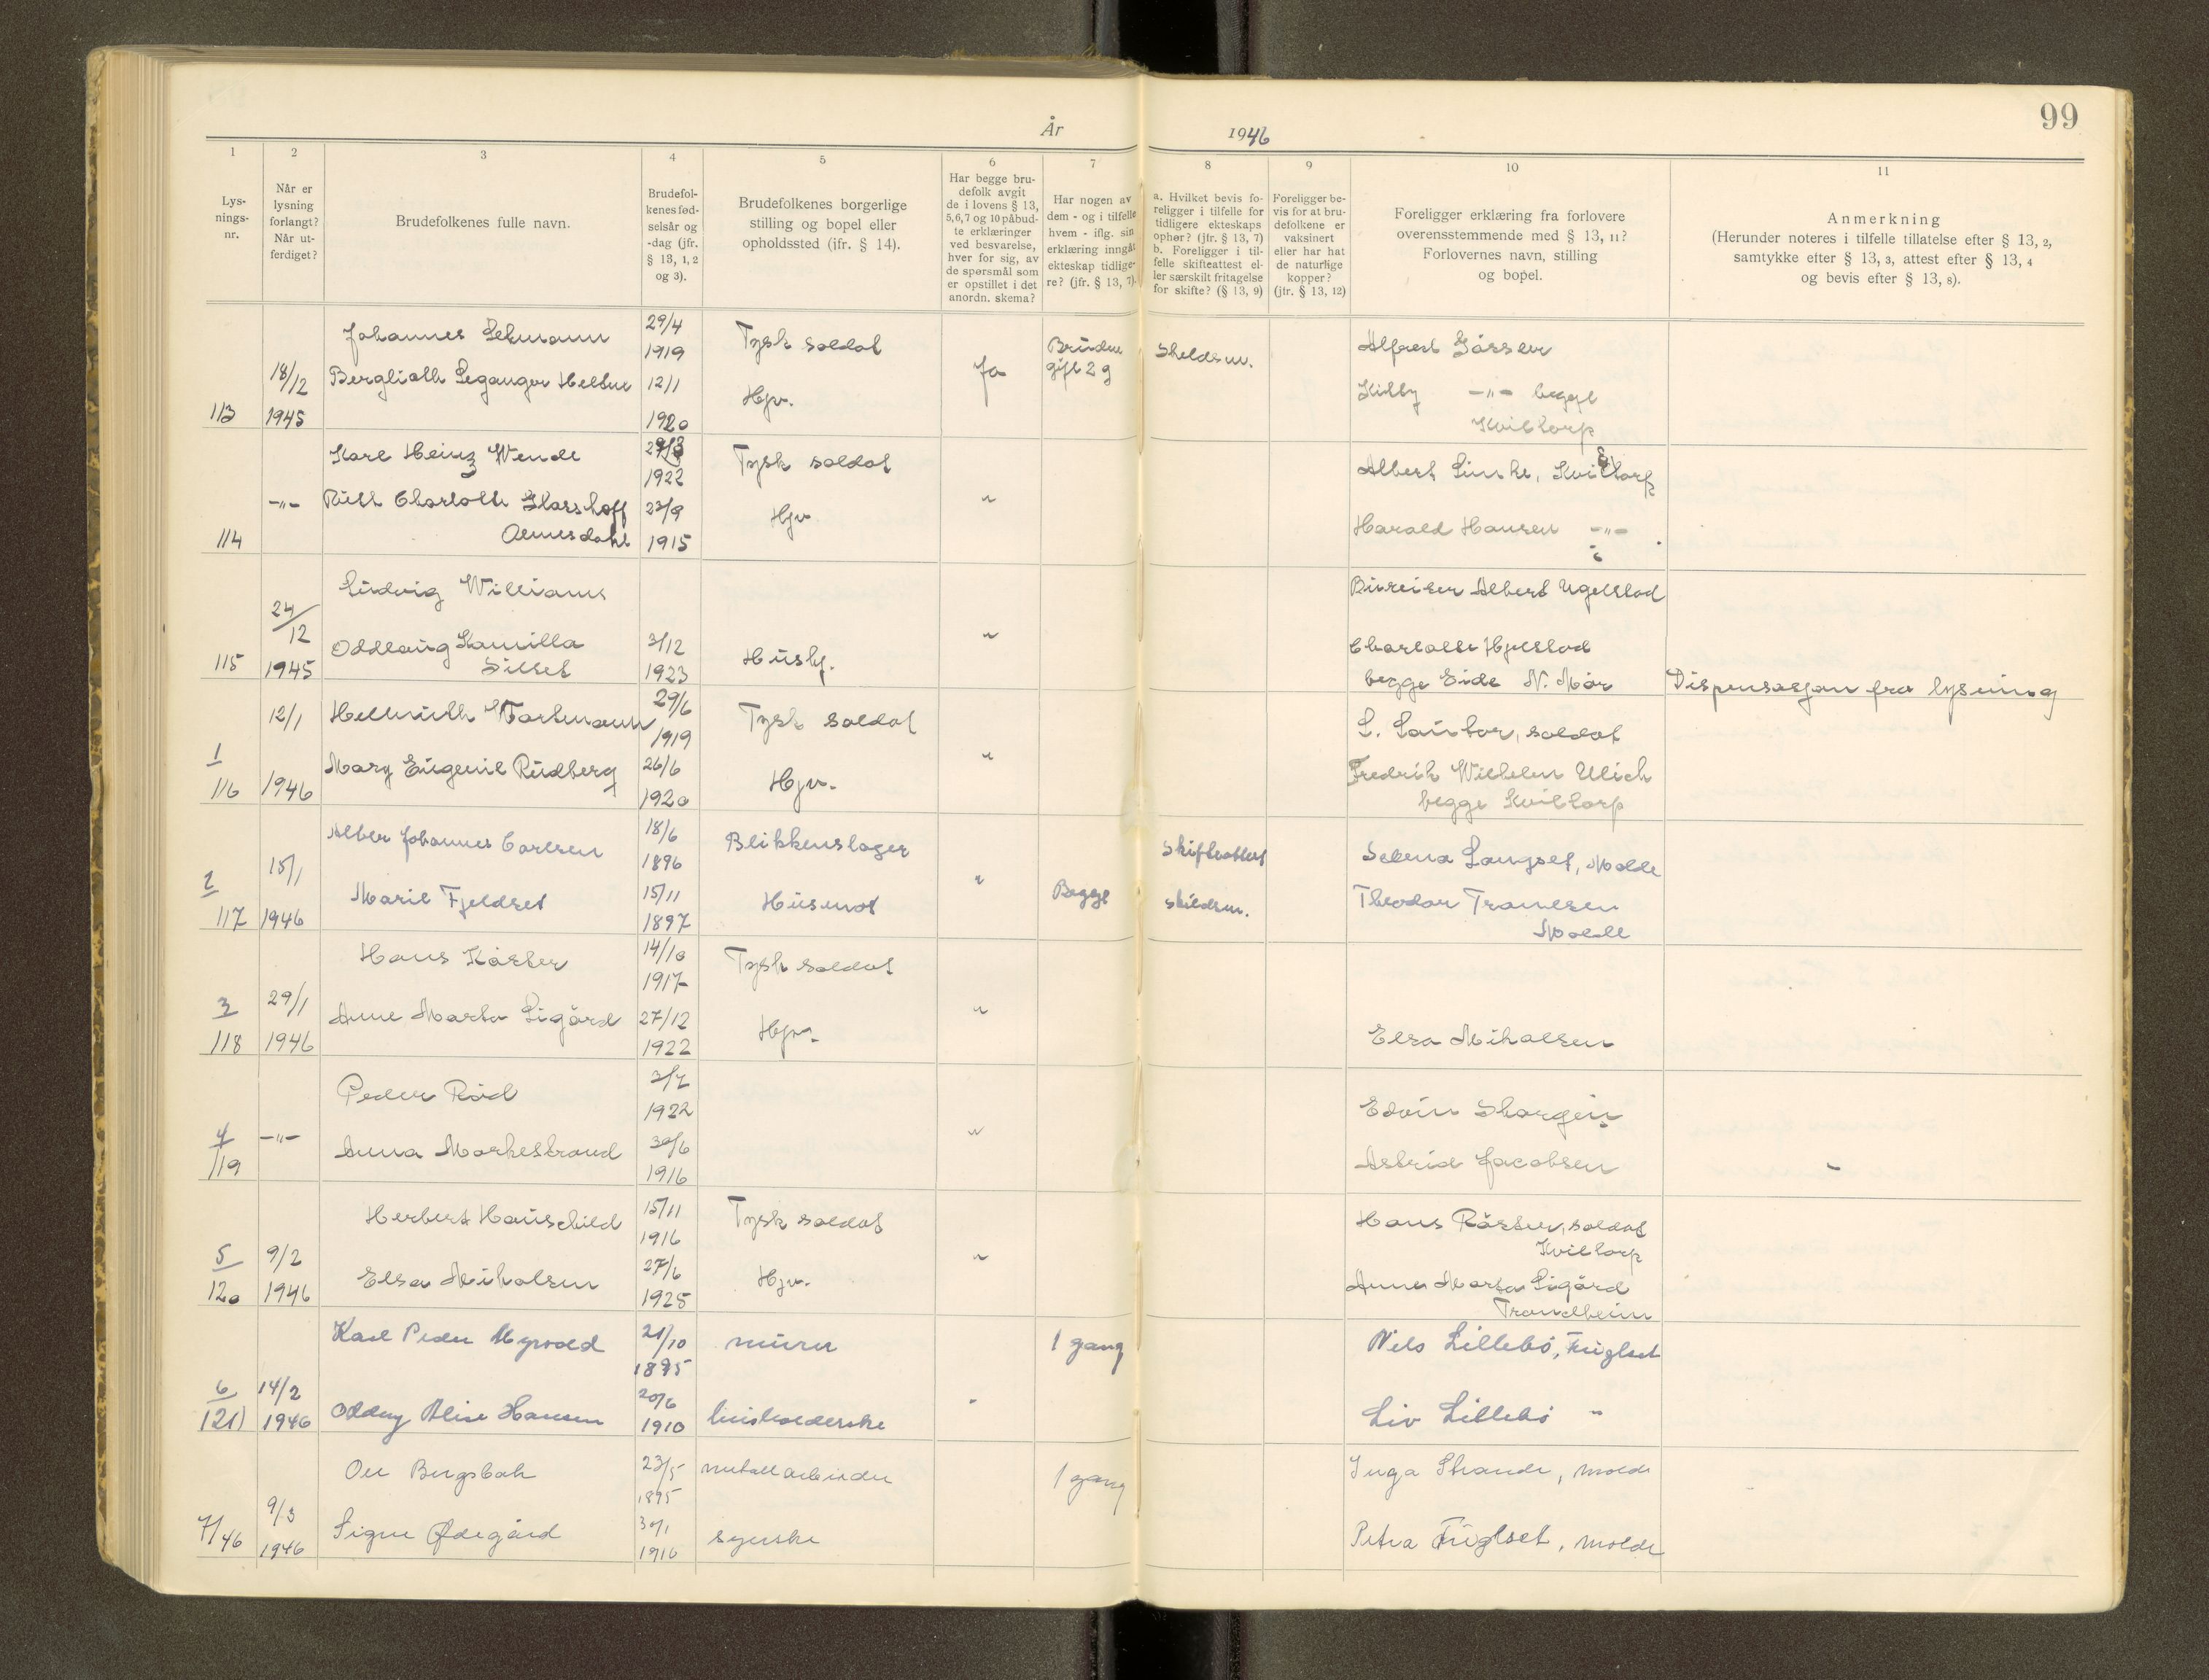 99
År 1946
1
Lys-
nings-
nr.
2
Når er
lysning
forlangt?
Når ut-
ferdiget?
3
Brudefolkenes fulle navn.
4
Brudefol-
kenes fød-
selsår og
-dag (jfr.
§ 13, 1, 2
og 3).
5
Brudefolkenes borgerlige
stilling og bopel eller
opholdssted (ifr. § 14).
6
Har begge bru-
defolk avgit
de i lovens § 13,
5, 6, 7 og 10 påbud-
te erklæringer
ved besvarelse,
hver for sig, av
de spørsmål som
er opstillet i det
anordn. skema?
7
Har nogen av
dem - og i tilfelle
hvem - iflg. sin
erklæring inngåt
ekteskap tidlige-
re? (jfr. § 13, 7).
8
a. Hvilket bevis fo-
religger i tilfelle for
tidligere ekteskaps
ophør? (jfr. § 13, 7)
b. Foreligger i til-
felle skifteattest el-
ler særskilt fritagelse
for skifte? (§ 13, 9)
9
Foreligger be-
vis for at bru-
defolkene er
vaksinert
eller har hat
de naturlige
kopper?
(jfr. § 13, 12)
10
Foreligger erklæring fra forlovere
overensstemmende med § 13, 11?
Forlovernes navn, stilling
og bopel.
11
Anmerkning
(Herunder noteres i tilfelle tillatelse efter § 13, 2,
samtykke efter § 13, 3, attest efter § 13, 4
og bevis efter § 13, 8).
113
18/12
1945
Johannes Lehmann
29/4
1919
Tysk soldat
Ja
gift 2 g
Alfred
Hjv.
12/1
1920
begge
Kviltorp
114
-"-
Karl Heinz Wende
1922
Tysk soldat
"
Albert Linke, Kviltorp
Ruth Charlotte
23/9
1915
Hjv
Harald Hansen -"-
115
24/12
1945
Ludvig Williams
Oddlaug Kamilla
Sillset
3/12
1923
Hushj.
"
Bureiser Albert Ugelstad
Charlotte
begge Eide N. Mør
Dispensasjon fra lysning
1
116
12/1
1946
Hellmuth
29/6
1919
Tysk soldat
Mary Eugenie Rudberg
26/6
1920
Hjv.
"
soldat
Fredrik Wilhelm Ulich
begge Kviltorp
2
117
15/1
1946
Johannes Carlsen
18/6
1896
Blikkenslager
Marie Fjeldset
15/11
1897
"
Begge
skifteattest
skildsm.
Langset, Molde
Theodor
Molde
3
118
29/1
1946
Hans
14/10
1917
Tysk soldat
Anne Marta Ligård
27/12
1922
Hjv.
"
Elsa Mikalsen
4
119
-"-
Peder Rød
1922
Anna Markestrand
30/6
1916
"
Edvin
Astrid Jacobsen
5
120
9/2
1946
Herbert Hauschild
15/11
1916
Tysk soldat
Elsa Mikalsen
27/6
1925
Hjv.
"
Hans soldat
Kviltorp
Anne Marta Ligård
Trondheim
6
121)
14/2
1946
Karl Peder Myrvold
21/10
1895
murer
1 gang
Oddny Alise Hansen
20/6
1910
husholderske
"
Nils Lillebø, Fuglset
Liv Lillebø "
7/46
9/3
1946
23/5
1895
metallarbeider
1 gang
Signe Ødegård
30/1
1916
syerske
Inga Strande, Molde
Petra Fuglset, Molde